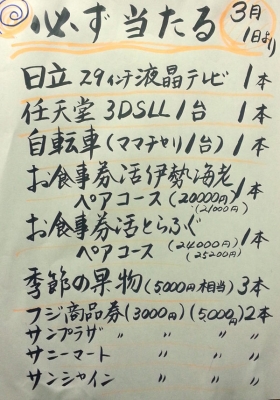 必ず当たる 3月1日より
日立 29インチ液晶テレビ 1本
任天堂 3DSLL 1台 1本
自転車(ママチャリ1台) 1本
お食事券活伊勢海老
ペアコース(20000円) 1本
(21000円)
お食事券活とらふぐ
ペアコース (24000円) 1本
(25200円)
季節の果物(5,000円相当) 3本
フジ商品券(3000円)(5,000円) 2本
サンプラザ 〃 〃 〃 〃
サニーマート 〃 〃 〃
サンシャイン 〃 〃 〃